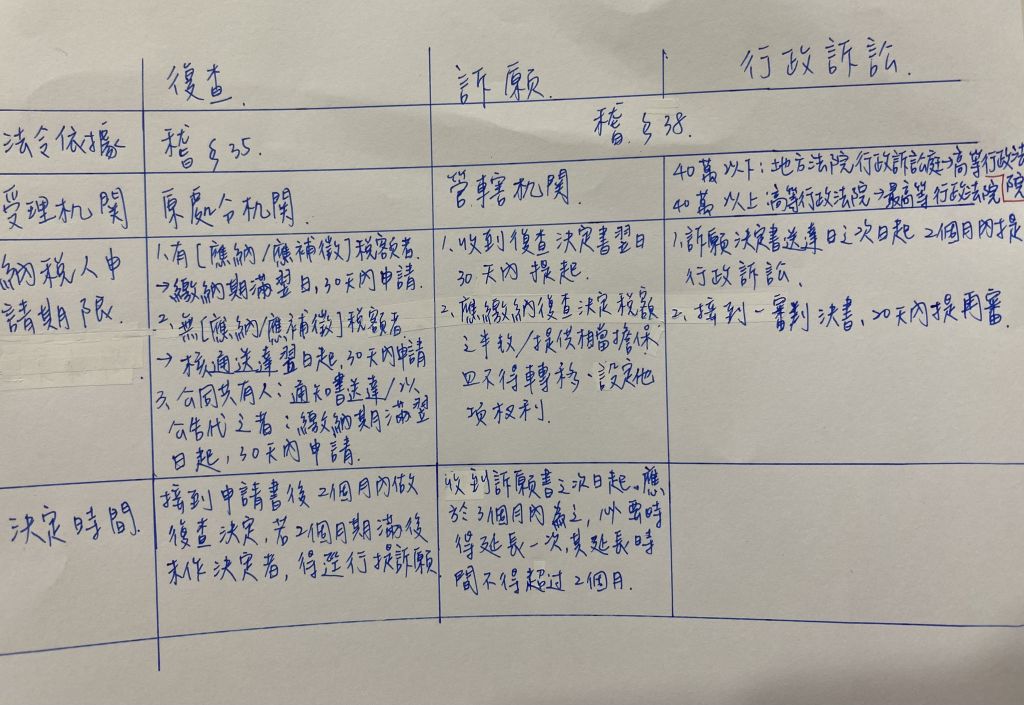 復查.
訴願.
行政訴訟.
法令依據
稽§35.
稽§38.
受理机関
原處令机関.
管轄机関.
40萬以下：地方法院行政訴訟庭→高等行政法
40萬以上：高等行政法院→最高等行政法院 院
納稅人申
請期限.
1.有[應納/應補徵]稅額者.
→繳納期滿翌日,30天內申請.
2.無[應納/應補徵]稅額者
→核通送達翌日起,30天內申請
3.公同共有人：通知書送達/以
公告代之者：繳納期滿翌
日起,30天內申請.
1.收到復查決定書翌日
30天內提起.
2.應繳納復查決定稅額
之半數/提供相當擔保
且不得轉移、設定他
項权利.
1.訴願決定書送達日之次日起 2個月內提
行政訴訟.
2.接到一審判決書,20天內提再審.
決定時間.
接到申請書後2個月內做
復查決定,若2個月期滿後
未作決定者,得逕行提訴願
收到訴願書之次日起.應
於3個月內為之,必要時
得延長一次,其延長時
間不得超过2個月.